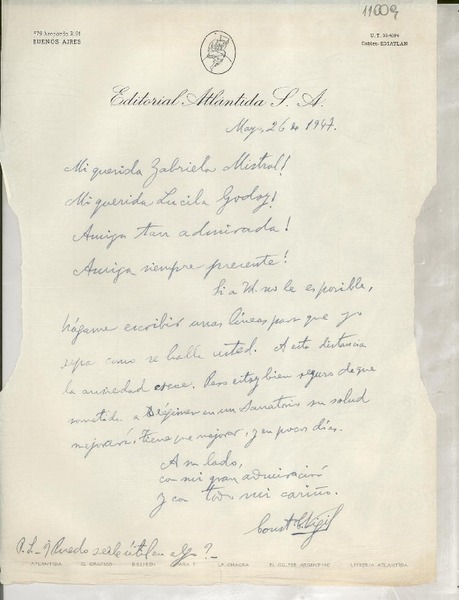 11009
579 Azopardo 579
BUENOS AIRES
U. T. 33-4591
Cables: EDIATLAN
Editorial Atlántida S. A.
Mayo, 26 de 1947.
Mi querida Gabriela Mistral!
Mi querida Lucila Godoy!
Amiga tan admirada!
Amiga siempre presente!
Si a Vd. no le es posible,
hágame escribir unas líneas para que yo
sepa como se halla usted. A esta distancia
la ansiedad crece. Pero estoy bien seguro de que
sometida a Régimen en un Sanatorio su salud
mejorará, tiene que mejorar, y en pocos días.
A su lado,
con mi gran admiración
y con todo mi cariño.
Const. C. Vigil
P.D. - ¿Puedo serle útil en algo?
ATLANTIDA EL GRAFICO BILLIKEN PARA TI LA CHACRA EL GOLFER ARGENTINO LIBRERIA ATLANTIDA